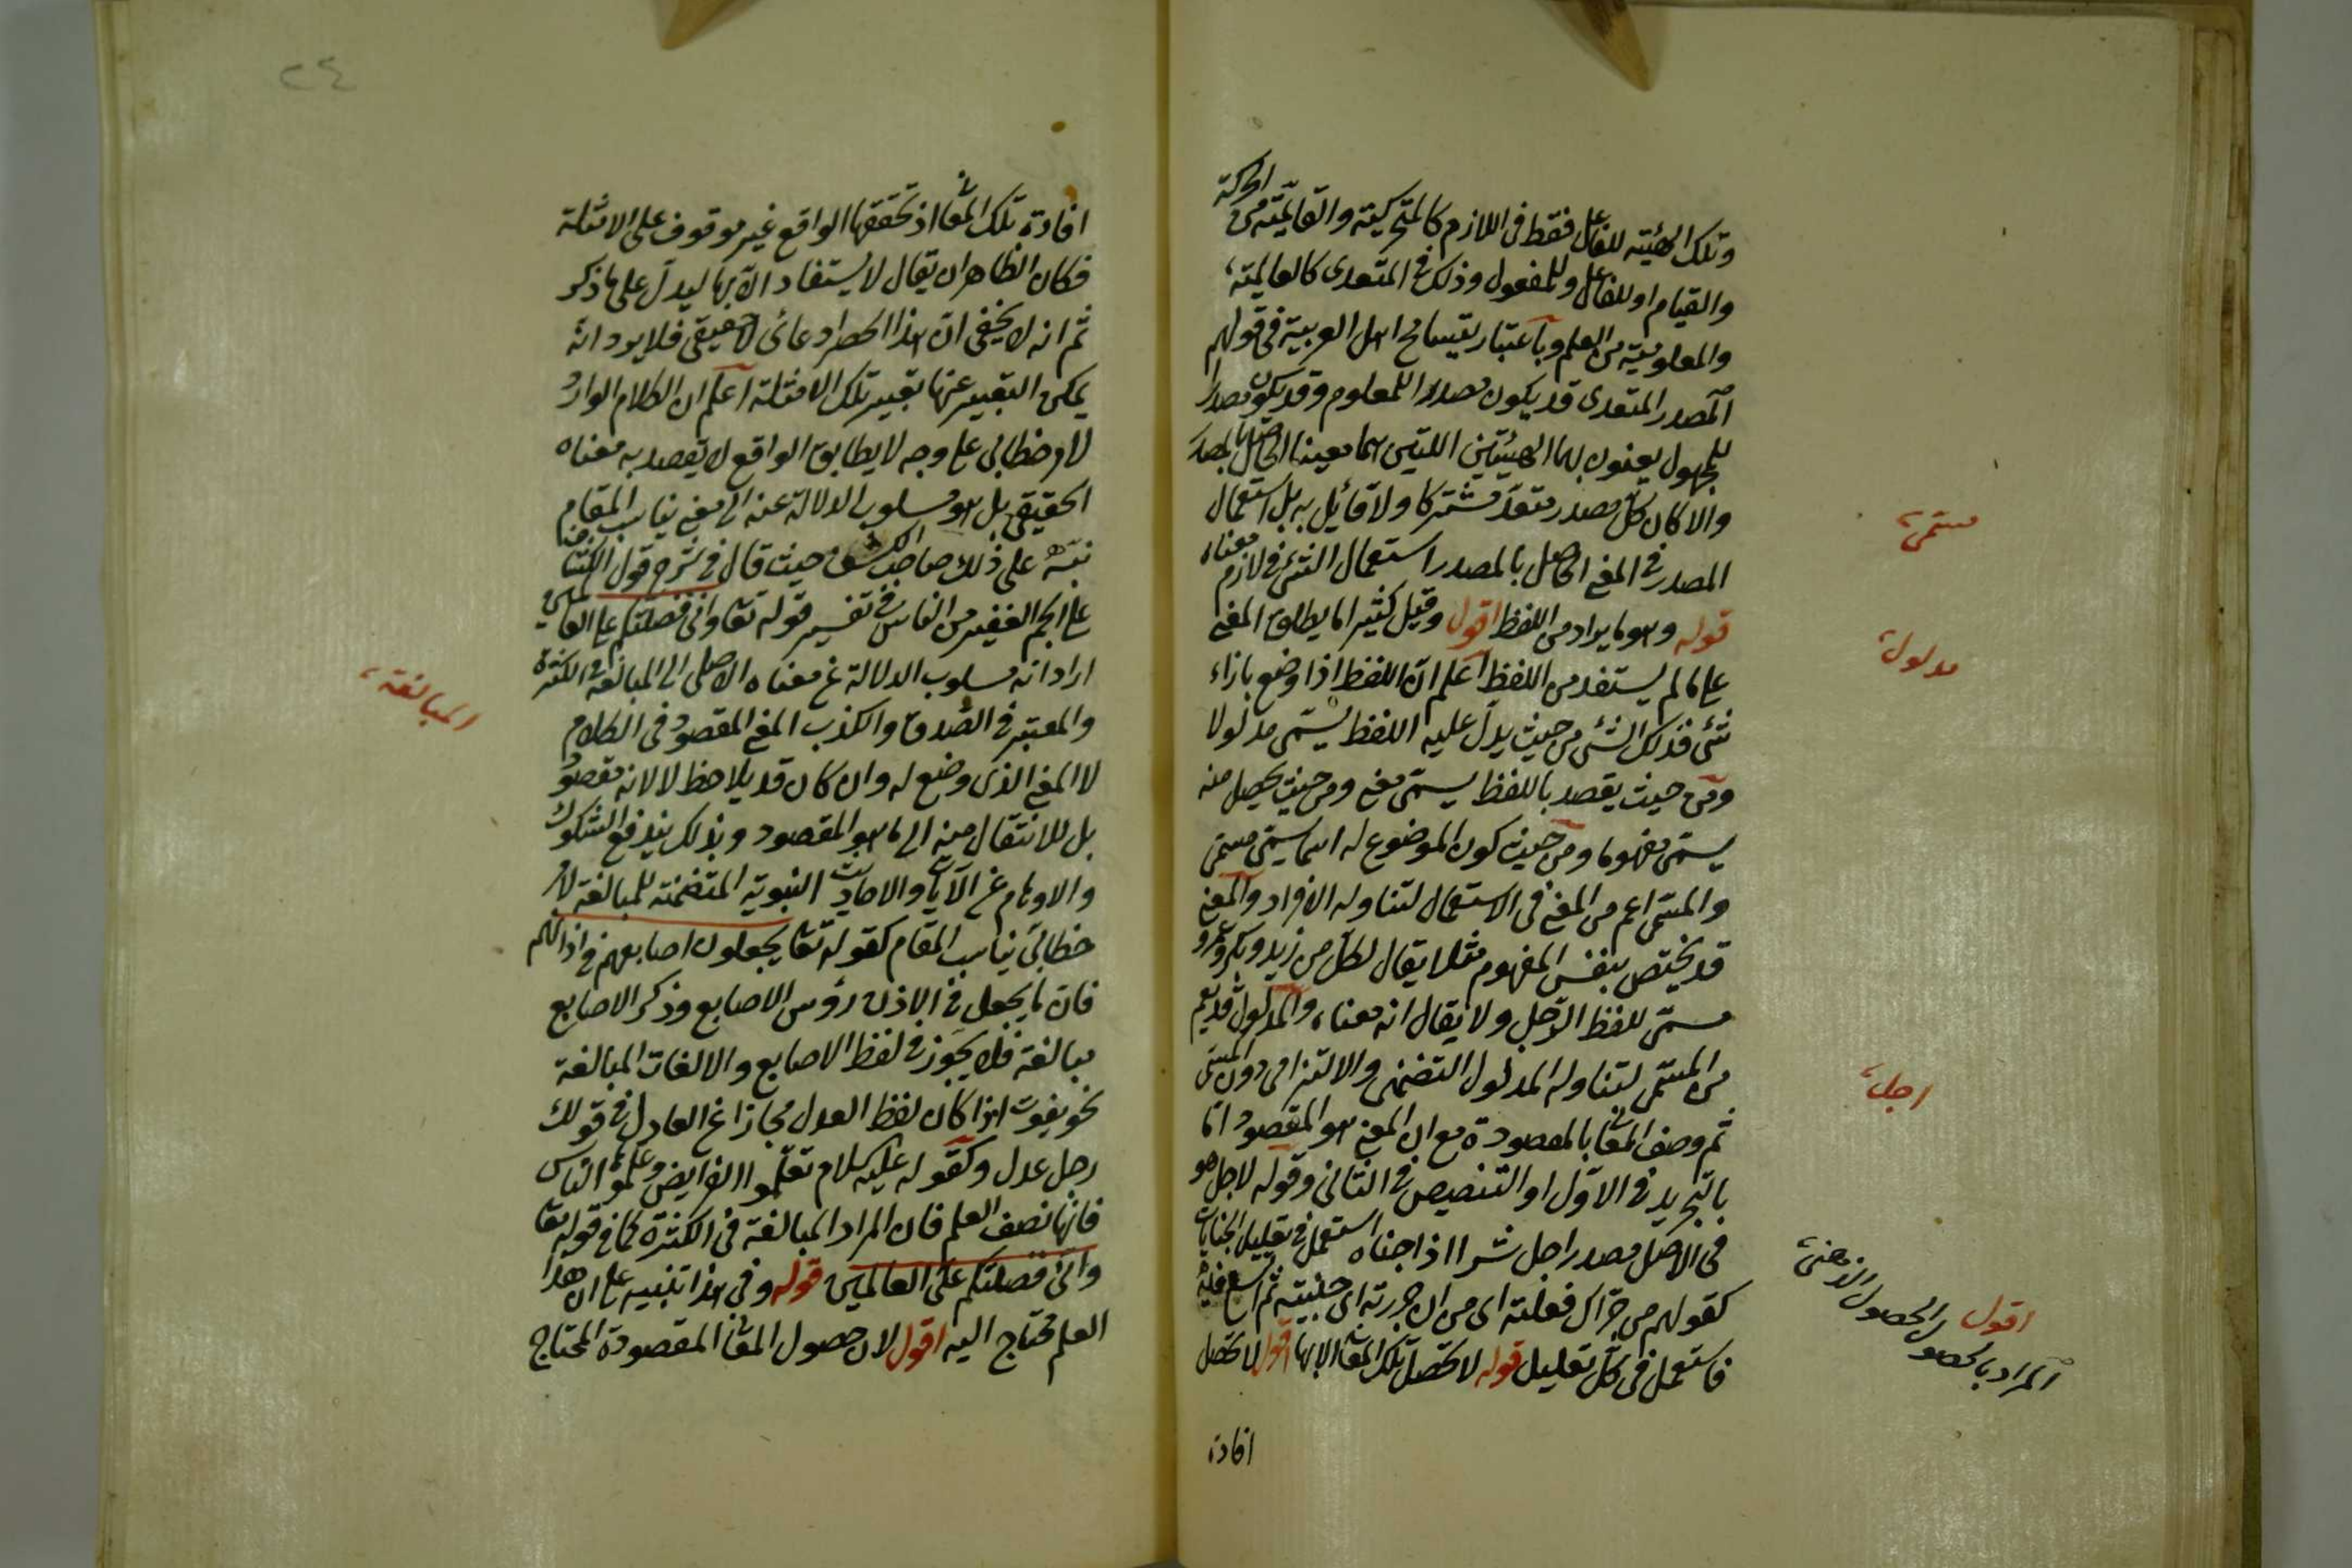 وتلك الهيئة للفاعل فقط فى اللازم كالمتحركية والقائمية من الحركة
والقيام او للفاعل وللمفعول وذلك فى المتعدى كالعالمية
والمعلومية من العلم وباعتباره يتسامح اهل العربية فى قولهم
المصدر المتعدى قد يكون مصدرا للمعلوم وقد يكون مصدرا
للمجهول يعنون بهما الهيئتين اللتين هما معينا الحاصل بالمصدر
والا لكان كل مصدر متعد مشتركا ولا قائل به بل استعمال
المصدر فى المعنى الحاصل بالمصدر استعمال الشئ فى لازم معناه
قوله وهو ما يراد من اللفظ اقول وقيل كثيرا ما يطلق المعنى
على ما لم يستفد من اللفظ اعلم ان اللفظ اذا وضع بازاء
شئ فذلك الشئ من حيث يدل عليه اللفظ يسمى مدلولا
ومن حيث يقصد باللفظ يسمى معنى ومن حيث يحصل منه
يسمى مفهوما ومن حيث كون الموضوع له اسما يسمى مسمى
والمسمى اعم من المعنى فى الاستعمال لتناوله الافراد والمعنى
قد يختص بنفس المفهوم مثلا يقال لكل من زيد وبكر وعمرو
مسمى للفظ الرجل ولا يقال انه معناه والمدلول قد يعم
من المسمى لتناوله المدلول التضمنى والالتزامى دون المسمى
ثم وصف المعانى بالمقصودة مع ان المعنى هو المقصود اما
بالتجريد فى الاول او التنصيص فى الثانى وقوله لاجل هو
فى الاصل مصدر اجل شرا اذا جناه استعمل فى تعليل الجنايات
كقولهم من جراك فعلته اى من ان جررته اى جنيته ثم اتسع فيه
فاستعمل فى كل تعليل قوله لا تحصل تلك المعانى الا بها اقول لا تحصل
افادة
مسمى
مدلول
اجل
اقول
المراد بالحصول الحصول الذهنى
٢٤
افادة تلك المعانى اذ تحققها الواقع غير موقوف على الامثلة
فكان الظاهر ان يقال لا يستفاد الا بها ليدل على ما ذكر
ثم انه لا يخفى ان هذا الحصر ادعائى لا حقيقى فلا يرد انه
يمكن التعبير عنها بتغيير تلك الامثلة اعلم ان الكلام الوارد
لامر خطابى على وجه لا يطابق الواقع لا يقصد به معناه
الحقيقى بل هو مسلوب الدلالة عنه الى معنى يناسب المقام
نبه على ذلك صاحب الكشف حيث قال فى شرح قول الكشاف
على الجم الغفير من الناس فى تفسير قوله تعا وانى فضلتكم على العالمين
اراد انه مسلوب الدلالة عن معناه الاصلى الى المبالغة فى الكثرة
والمعتبر فى الصدق والكذب المعنى المقصود فى الكلام
لا المعنى الذى وضع له وان كان قد يلاحظ لا لانه مقصود
بل للانتقال منه الى ما هو المقصود وبذلك يندفع الشكوك
والاوهام عن الآيات والاحاديث النبوية المتضمنة للمبالغة لامر
خطابى يناسب المقام كقوله تعا يجعلون اصابعهم فى اذانهم
فان ما يجعل فى الاذن رؤس الاصابع وذكر الاصابع
مبالغة فلا يجوز فى لفظ الاصابع والا لفات المبالغة
نحو يفوت اذا كان لفظ العدل مجازا عن العادل فى قولك
رجل عدل وكقوله عليه السلام تعلموا الفرايض وعلموه الناس
فانها نصف العلم فان المراد المبالغة فى الكثرة كما فى قوله تعا
وانى فضلتكم على العالمين قوله وفى هذا تنبيه على ان هذا
العلم محتاج اليه اقول لان حصول المعانى المقصودة المحتاج
المبالغة